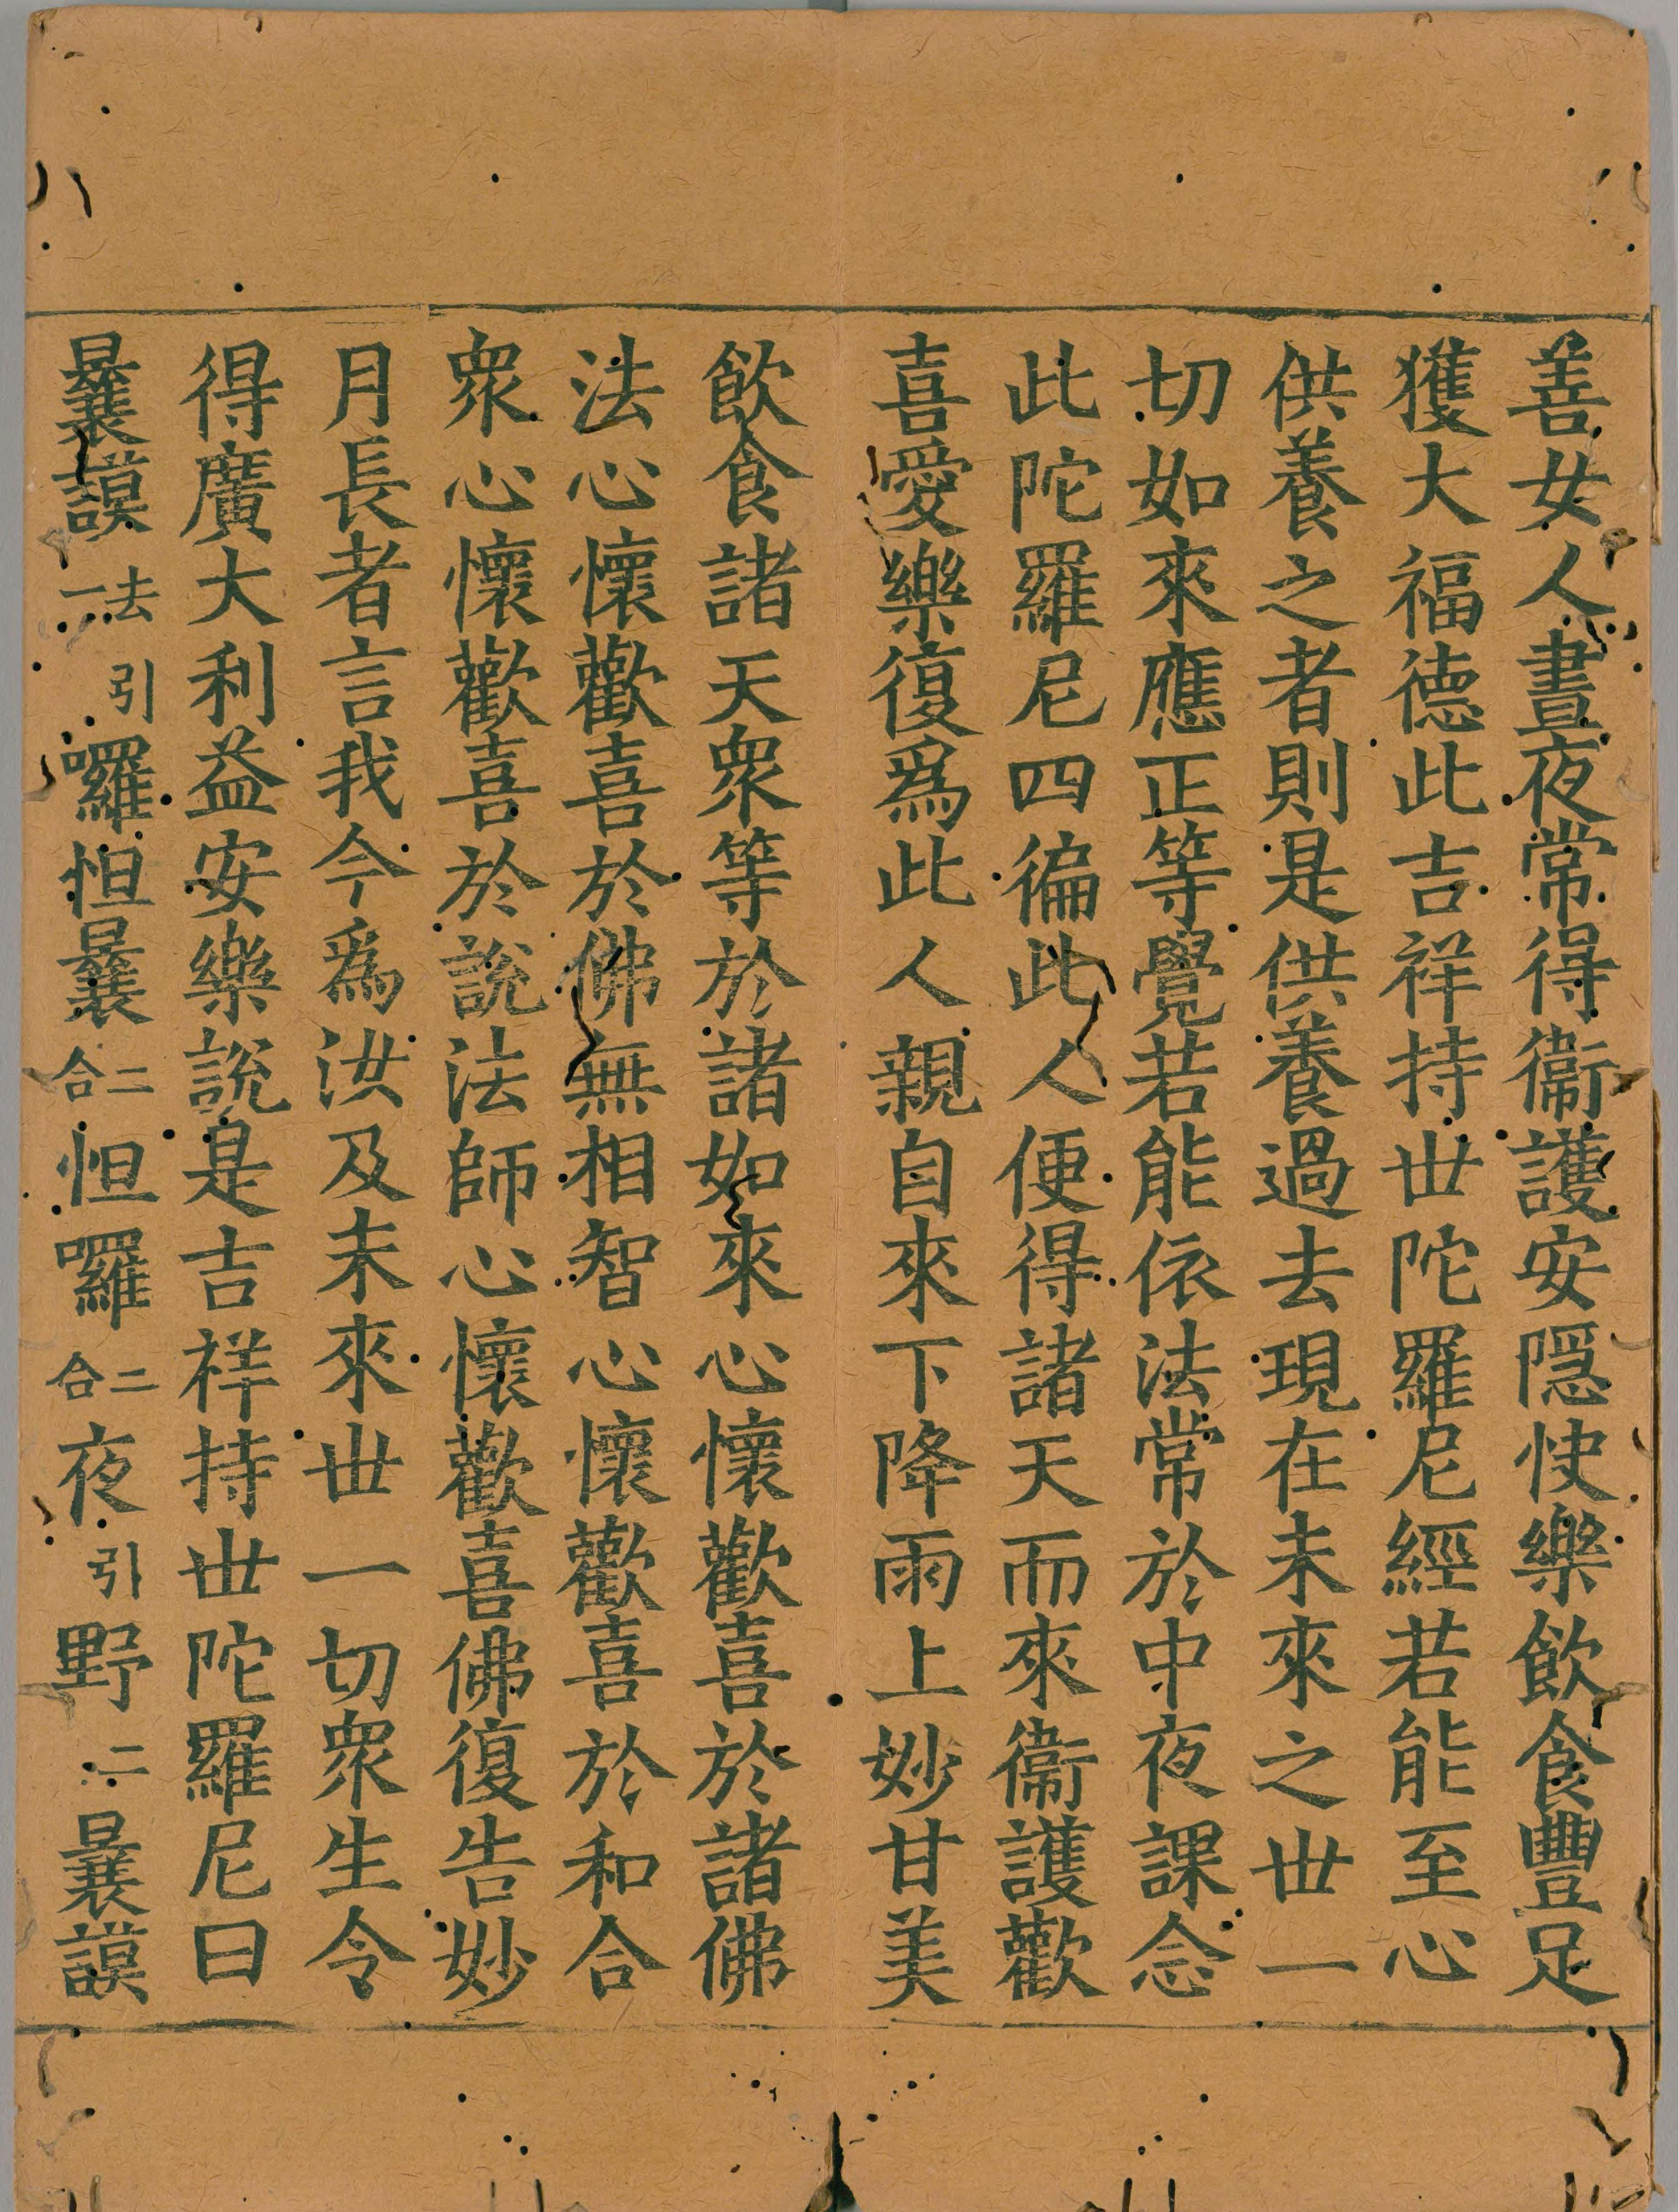 善女人晝夜常得衞護安隱快樂飲食豐足
獲大福德此吉祥持丗陀羅尼經若能至心
供養之者則是供養過去現在未來之丗一
切如來應正等覺若能依法常於中夜課念
此陀羅尼四徧此人便得諸天而來衞護歡
喜愛樂復爲此人親自來下降雨上妙甘美
飲食諸天衆等於諸如來心懷歡喜於諸佛
法心懷歡喜於佛無相智心懷歡喜於和合
衆心懷歡喜於說法師心懷歡喜佛復告妙
月長者言我今爲汝及未來丗一切衆生令
得廣大利益安樂說是吉祥持丗陀羅尼曰
曩謨去一引囉怛曩二合怛囉二合夜引野二曩謨